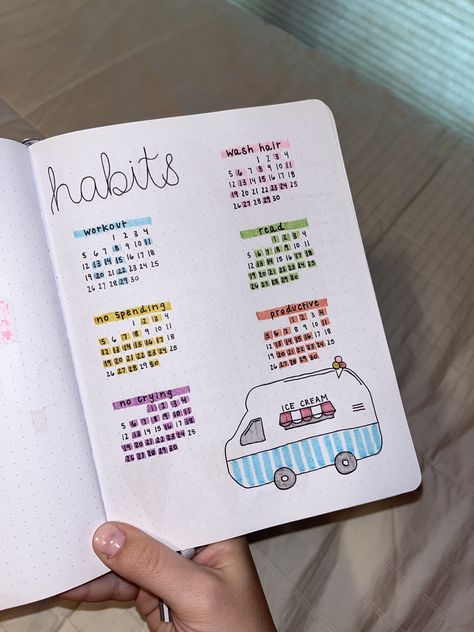 habits
workout
1 2 3 4
5 6 7 8 9 10 11
12 13 14 15 16 17 18
19 20 21 22 23 24 25
26 27 28 29 30
no spending
1 2 3 4
5 6 7 8 9 10 11
12 13 14 15 16 17 18
19 20 21 22 23 24 25
26 27 28 29 30
no crying
1 2 3 4
5 6 7 8 9 10 11
12 13 14 15 16 17 18
19 20 21 22 23 24 25
26 27 28 29 30
wash hair
1 2 3 4
5 6 7 8 9 10 11
12 13 14 15 16 17 18
19 20 21 22 23 24 25
26 27 28 29 30
read
1 2 3 4
5 6 7 8 9 10 11
12 13 14 15 16 17 18
19 20 21 22 23 24 25
26 27 28 29 30
productive
1 2 3 4
5 6 7 8 9 10 11
12 13 14 15 16 17 18
19 20 21 22 23 24 25
26 27 28 29 30
ICE CREAM